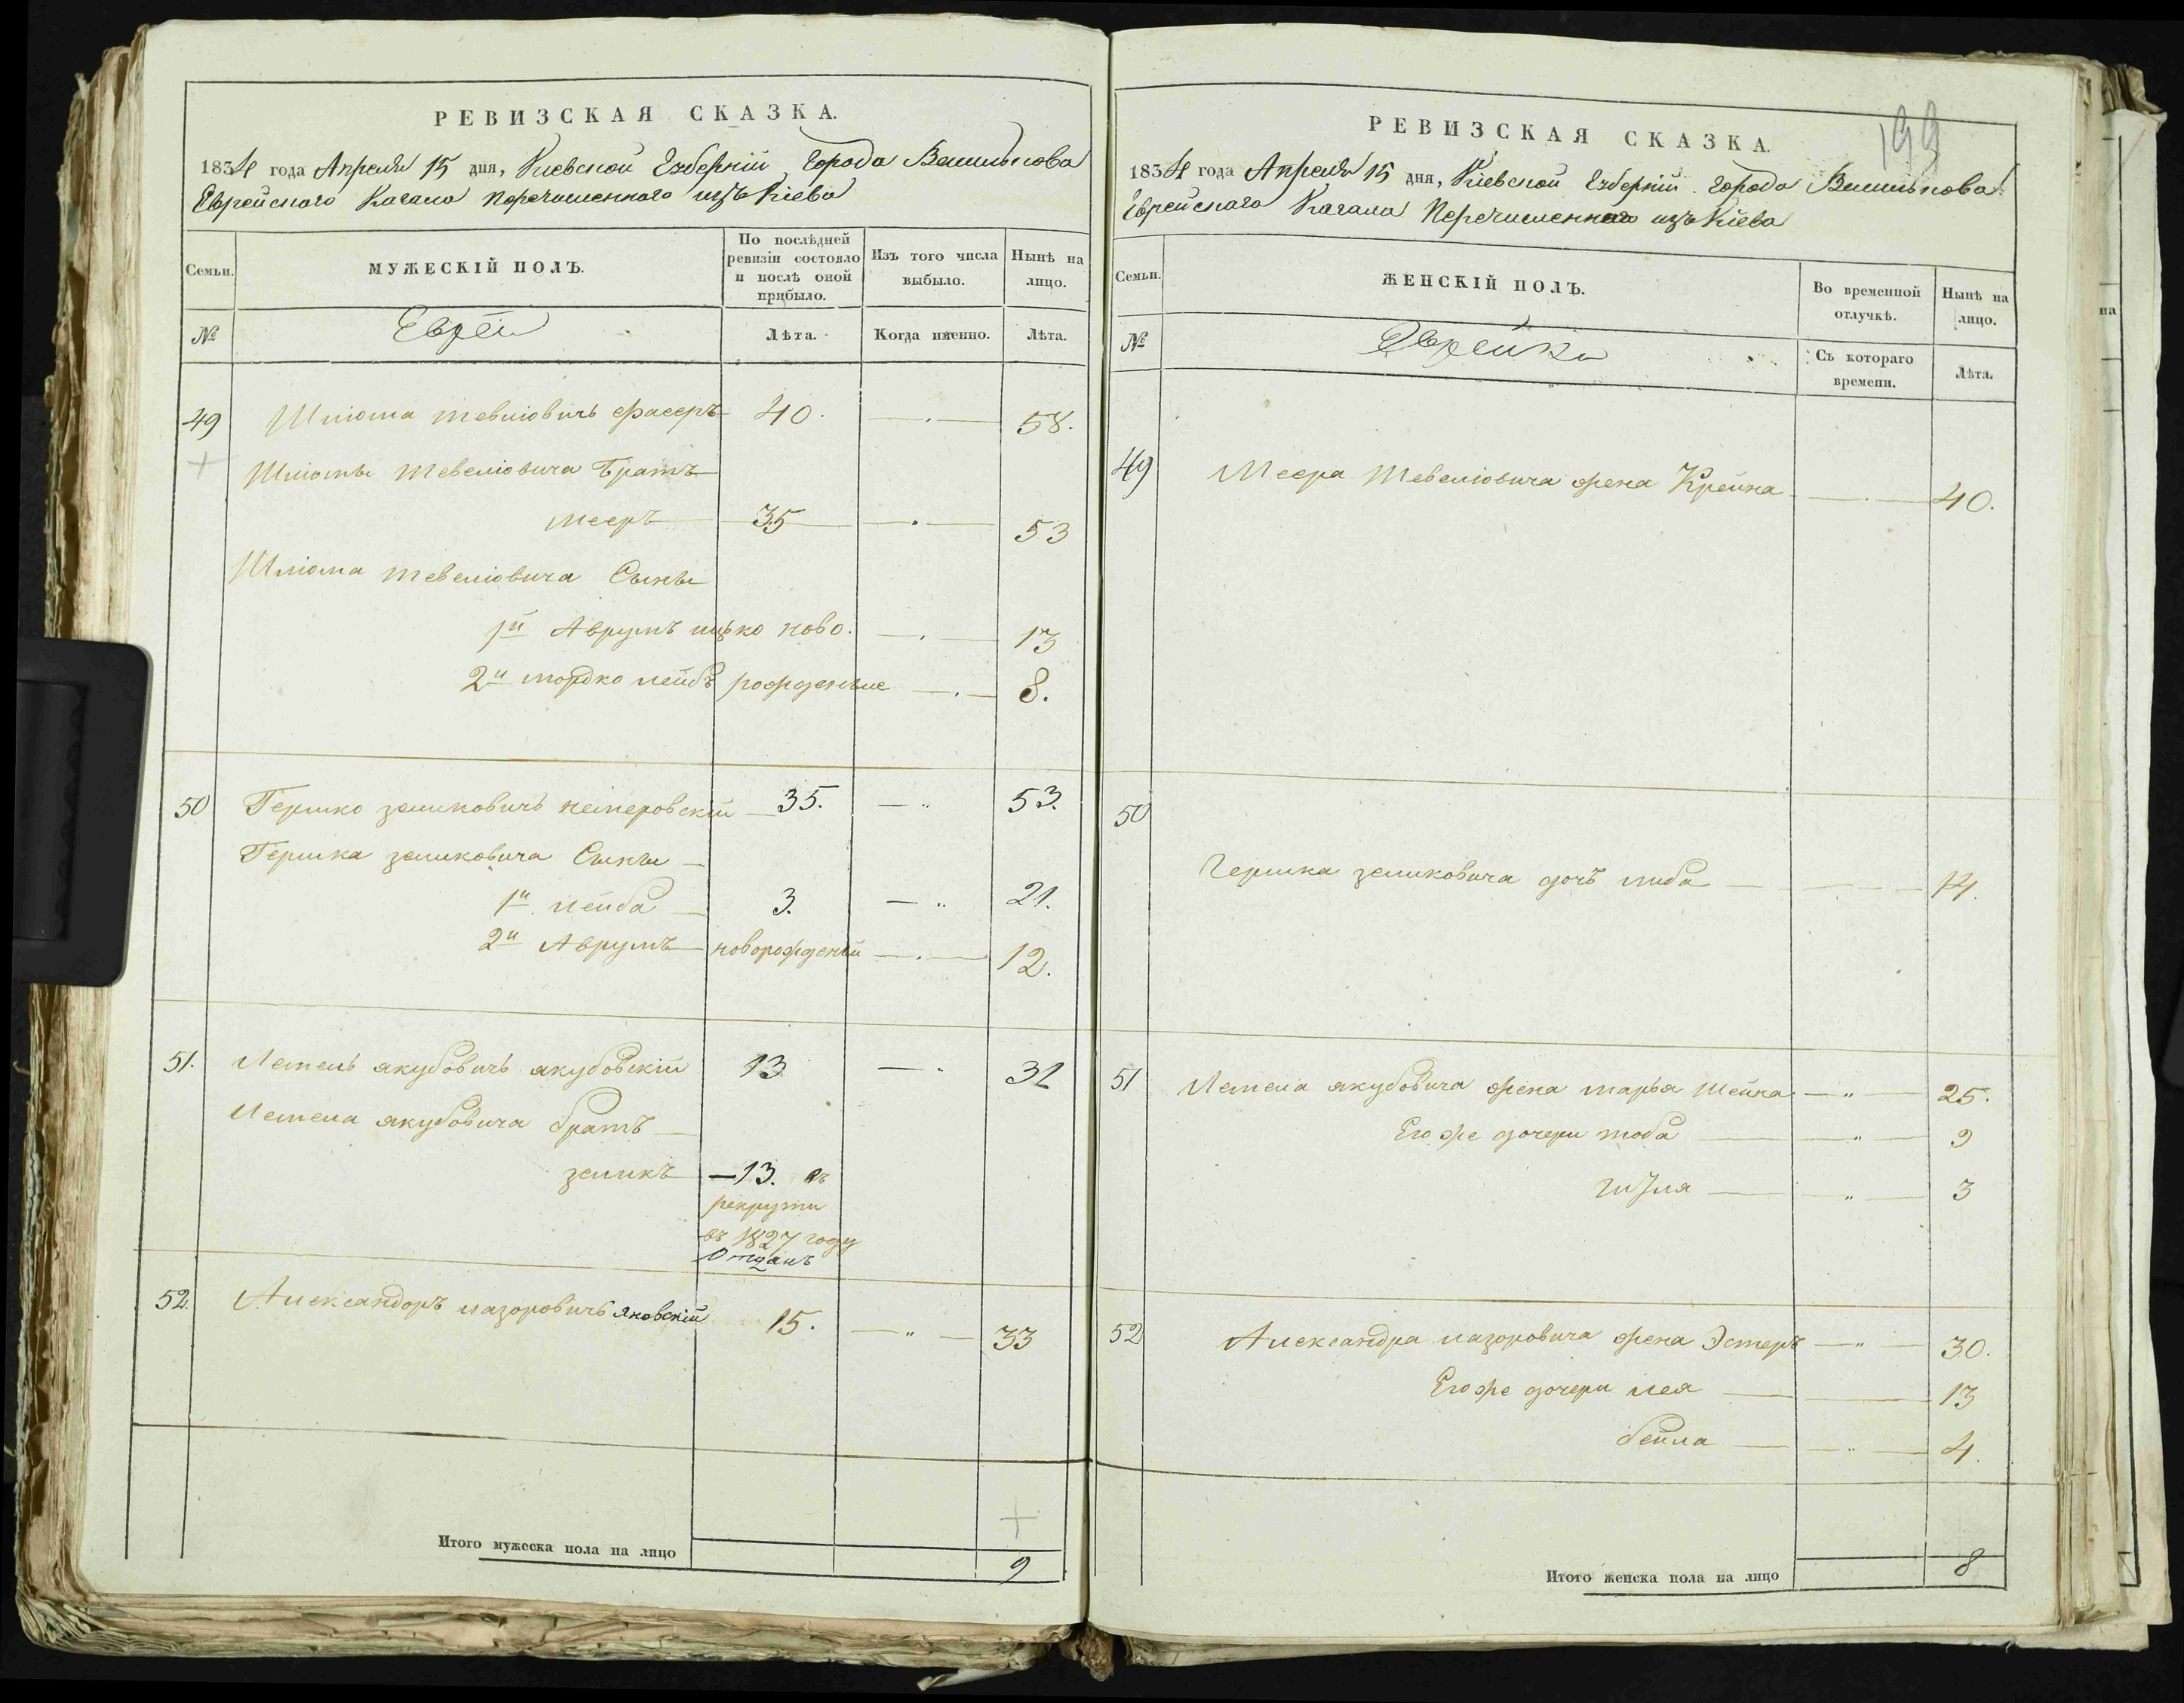 РЕВИЗСКАЯ СКАЗКА.
1834 года Апреля 15 дня, Киевской Губерній Города Василькова
Еврейского Кагала перечисленного изъ Кіева
Семьи.
МУЖЕСКІЙ ПОЛЪ.
По послѣдней ревизіи состояло и послѣ оной прибыло.
Изъ того числа выбыло.
Нынѣ на лицо.
№
Евреи
Лѣта.
Когда именно.
Лѣта.
49 Шліома тевліовичъ фасеръ 40. 58.
Шліомы тевеліовича братъ
мееръ 35 53
Шліома тевеліовича Сыны
1й Аврумъ ицко ново. 13
2й мордко лейбъ рожденые 8.
50 Гершко зеликовичъ немеровскій 35. 53.
Гершка зеликовича Сыны
1й лейба 3. 21.
2й Аврумъ новорожденый 12.
51. Лемель якубовичъ якубовскій 13 31
Лемела якубовича братъ
зеликъ 13. въ
рекруты
въ 1827 году
Отданъ
52. Александоръ лазоровичъ яновскій 15. 33
Итого мужеска пола на лицо 9
199
РЕВИЗСКАЯ СКАЗКА.
1834 года Апреля 15 дня, Кіевской Губерній Города Василькова
Еврейскаго Кагала Перечисленнаго изъ Кіева
Семьи.
ЖЕНСКІЙ ПОЛЪ.
Во временной отлучкѣ.
Нынѣ на лицо.
№
Еврейки
Съ котораго времени.
Лѣта.
49 Меера Тевеліовича жена Крейна 40.
50
Гершка зеликовича дочъ либа 14.
51 Лемела якубовича жена марья шейна 25.
Его же дочери тоба 9
гизля 3
52 Александра лазоровича жена Эстеръ 30.
Его же дочери лея 13
бейла 4.
Итого женска пола на лицо 8